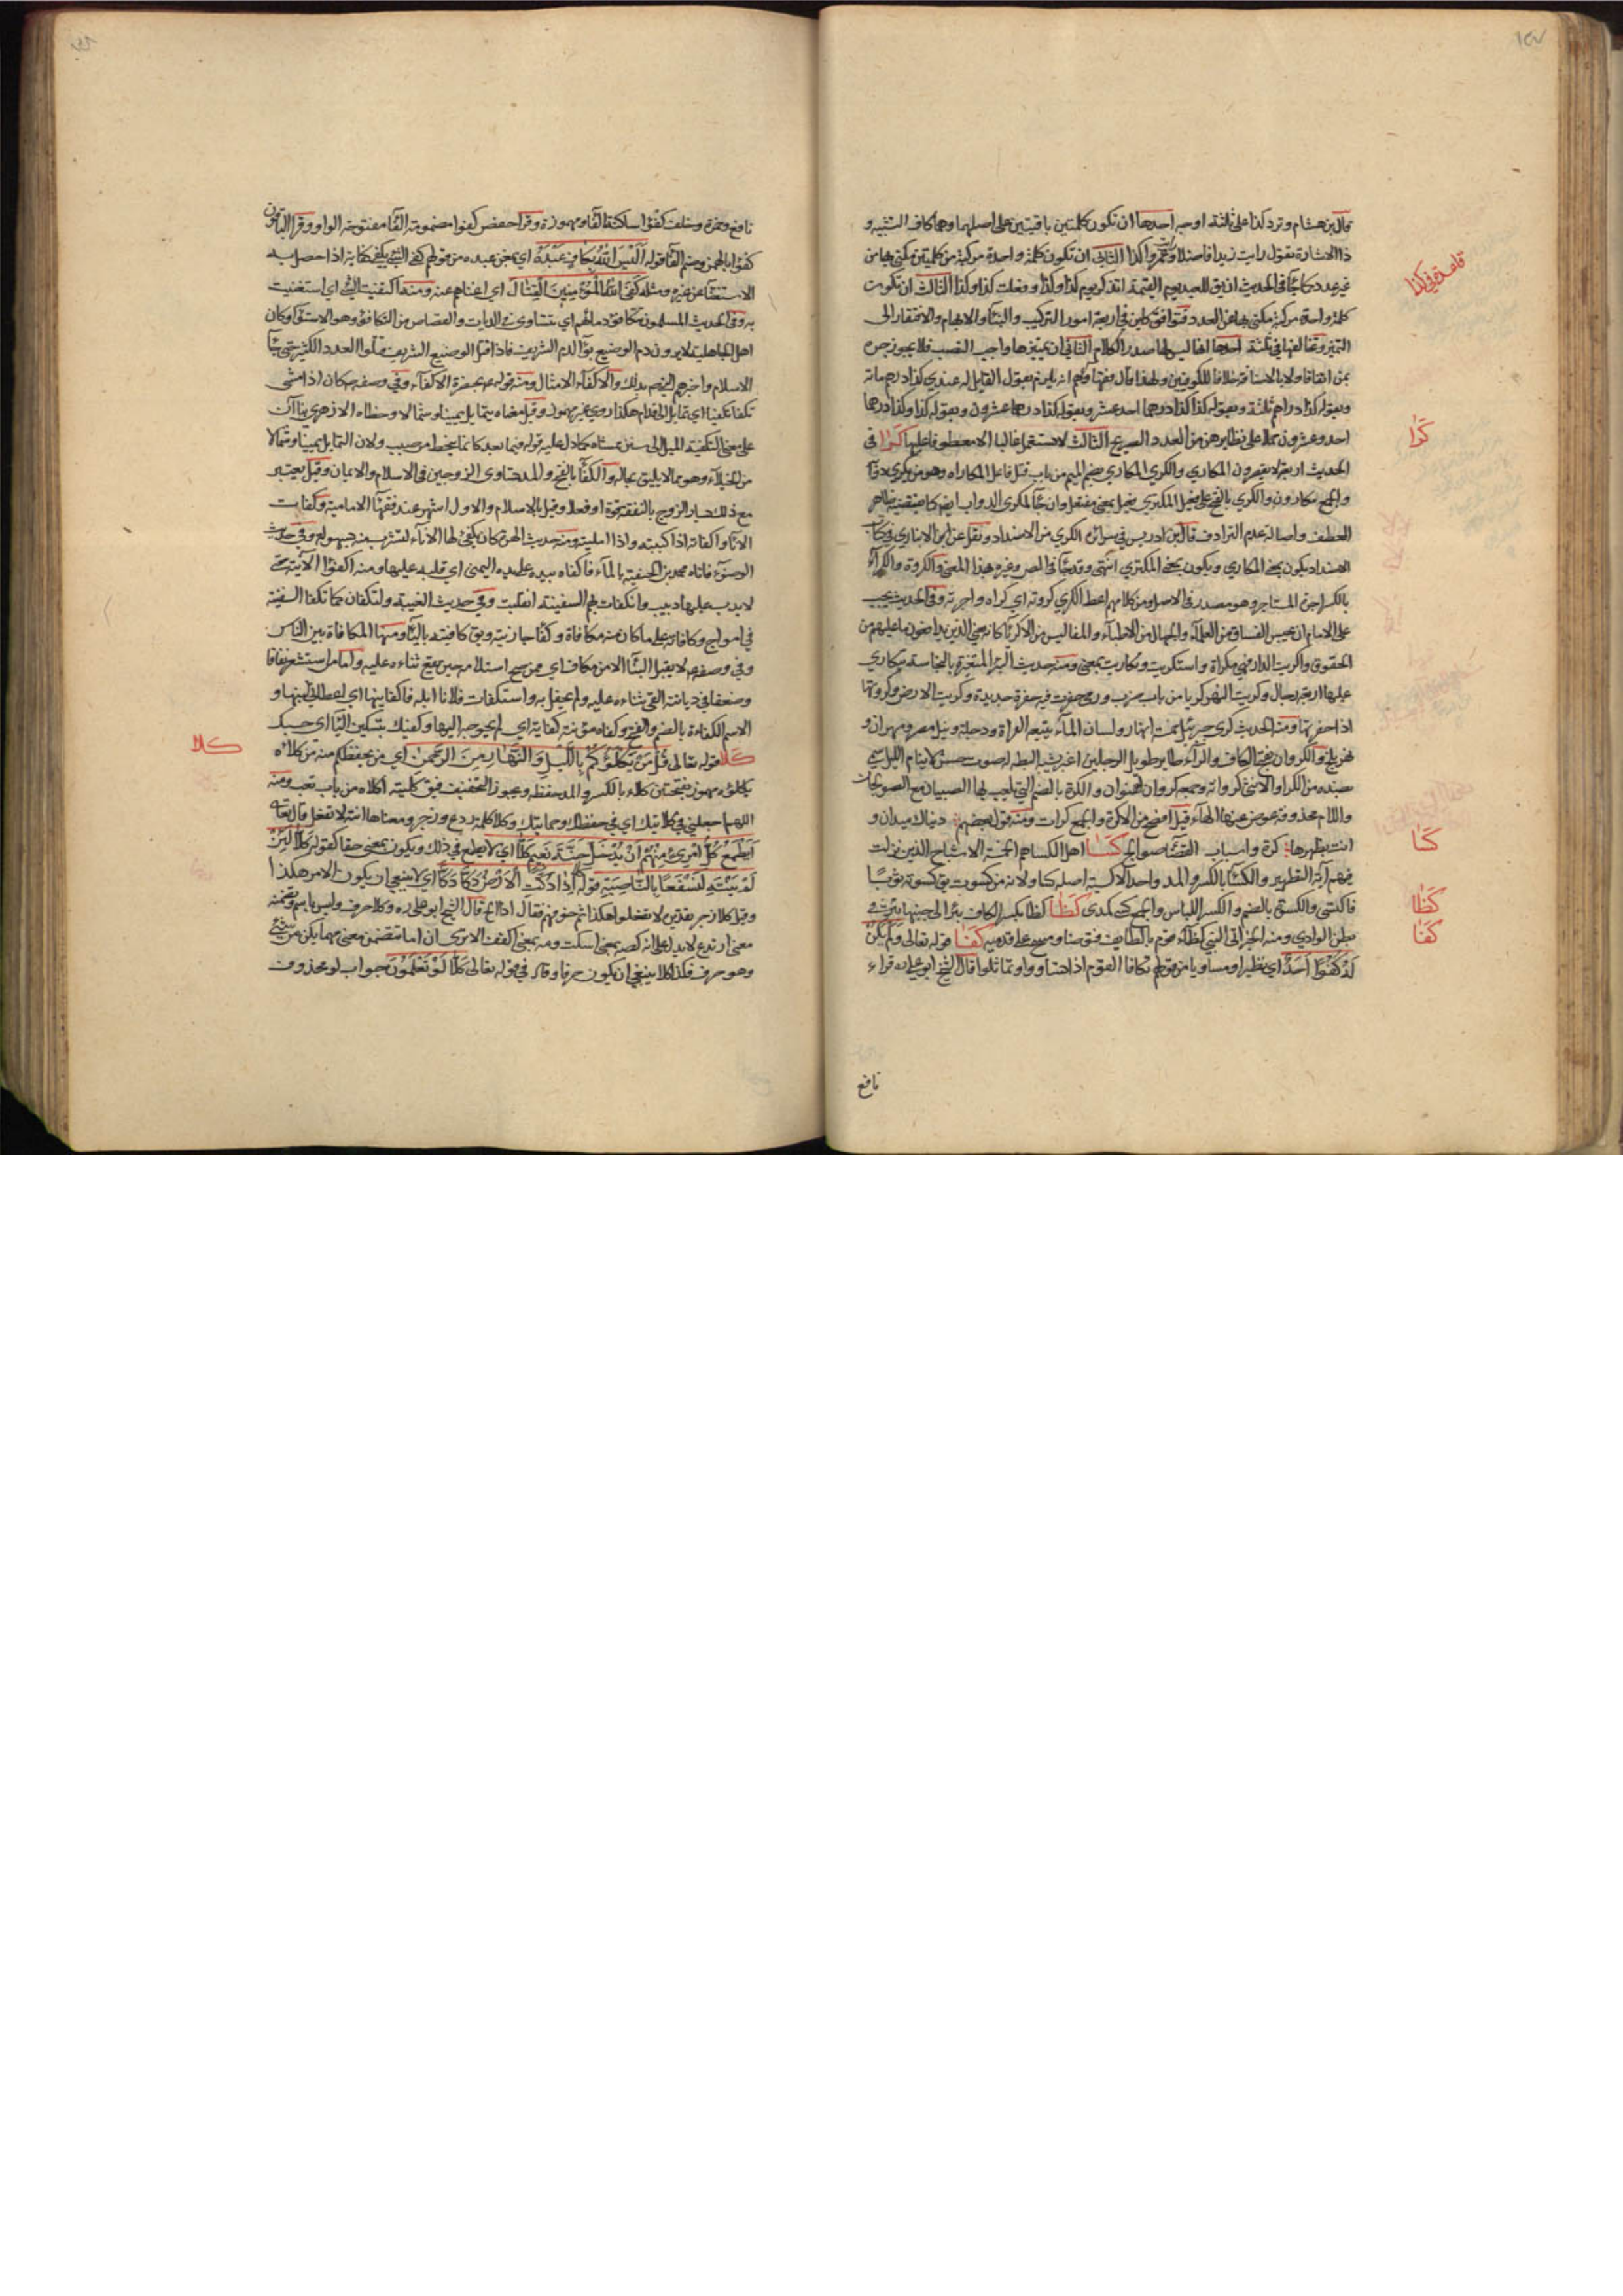 قال بن هشام وترد كذا على ثلثة اوجه احدها ان تكون كلمتين باقيتين على اصلهما وهما كاف التشبيه و
ذا الاشارة تقول رايت زيدا فاضلا وعمروا كذا الثاني ان تكون كلمة واحدة مركبة من كلمتين مكني بها عن
غير عدد كما جاء في الحديث انه يق للعبد يوم القيمة اتذكر يوم كذا وكذا وفعلت كذا وكذا الثالث ان تكون
كلمة واحدة مركبة مكني بها عن العدد فتوافق كاين في اربعة امور التركيب والبناء والابهام والافتقار الى
التميز وتخالفها في ثلثة احدها انها ليس لها صدر الكلام الثاني ان تميزها واجب النصب فلا يجوز جره
بمن اتفاقا ولا بالاضافة خلافا للكوفيين ولهذا قال فقهاؤهم انه يلزم بقول القايل له عندي كذا درهم مائة
وبقوله كذا دراهم ثلثة وبقوله كذا كذا درهما احد عشر وبقوله كذا درهما عشرون وبقوله كذا وكذا درهما
احد وعشرون حملا على نظايرهن من العدد الصريح الثالث لا تستعمل غالبا الا معطوفا عليها كرا في
الحديث اربعة لا يقصرون المكاري والكري المكاري بضم الميم من باب قاتل فاعل المكاراه وهو من يكري دوابه
والجمع مكارون والكري بالفتح على فعيل المكتري فعيل بمعنى مفتعل وان جاء لمكري الدواب ايضا كما يقتضيه ظاهر
العطف واصالة عدم الترادف قال بن ادريس في سرائره الكري من الاضداد ونقل عن ابن الانباري في كتاب
الاضداد يكون بمعنى المكاري ويكون بمعنى المكتري انتهى
بالكسر اجرة المستاجر وهو مصدر في الاصل ومن كلامهم اعط الكري كروته اي كراه واجرته وفي الحديث يجب
على الامام ان يحبس الفساق من العلماء والجهال من الاطباء والمفاليس من الاكرياء
الحقوق واكريت الدار فهي مكراة واستكريت وتكاريت بمعنى ومنه حديث البئر المتغيرة بالنجاسة يتكاري
عليها اربعة رجال وكريت النهر كريا من باب رمى حفرت فيه حفرة جديدة وكريت الارض وكروتها
اذا حفرتها ومنه الحديث كرى جبرئيل خمسة انهار ولسان الماء يتبعه الفراة ودجلة ونيل مصر ومهران و
نهر بلخ والكروان بفتح الكاف والراء طاير طويل الرجلين اغبر شبيه البطة له صوت حسن لا ينام الليل سمي
بضده من الكرا والانثى كروانة وجمعه كروان والكرة بالضم التي يلعب بها الصبيان مع الصولجان
واللام محذوفة عوض عنها الهاء قيل افصح من الاكرة والجمع كرات ومنه قول بعضهم دنياك ميدان و
انت بظهرها كرة واسباب القضاء صوالجا كسا اهل الكسا هم الخمسة الاشباح الذين نزلت
فيهم آية التطهير والكساء بالكسر والمد واحد الاكسية اصله كساو لانه من كسوت يق كسوته ثوبا
فاكتسى والكسوة بالضم والكسر اللباس والجمع كسى كمدى كظا كظا بكسر الكاف بئر الى جنبها بئر في
بطن الوادي ومنه الخبر اتى النبي كظاء قوم بالطايف فتوضا ومسح على قدميه كفا قوله تعالى ولم يكن
له كفوا احد اي نظيرا ومساويا من قولهم تكافا القوم اذا تساووا وتماثلوا قال الشيخ ابو علي ره قراء
نافع
قاعدة في كذا
كرا
كسا
كظا
كفا
نافع وحمزة وخلف كفؤا ساكنة الفاء مهموزة وقرا حفص كفوا مضمومة الفاء مفتوحة الواو وقرا الباقون
كفؤا بالهمز وضم الفاء قوله اليس الله بكاف عبده اي يجزي عبده من قولهم كفى الشيء يكفي كفاية اذا حصل به
الاستغناء عن غيره ومثله كفى الله المؤمنين القتال اي اغناهم عنه ومنه اكتفيت بالشيء اي استغنيت
به وفي الحديث المسلمون تتكافؤ دمائهم اي تتساوى في الديات والقصاص من التكافؤ وهو الاستواء وكان
اهل الجاهلية لا يرون دم الوضيع بواء لدم الشريف فاذا قتل الوضيع الشريف قتلوا العدد الكثير حتى جاء
الاسلام واخبرهم النبي ص بذلك والاكفاء الامثال ومنه قوله بحضرة الاكفاء وفي وصفه ص كان اذا مشى
تكفا تكفيا اي تمايل الى قدام هكذا روي غير مهموز وقيل معناه يتمايل يمينا وشمالا وخطاه الازهري بناء
على معنى التكفية الميل الى سنن ممشاه كما دل عليه قوله فيما بعد كانما ينحط من صبب ولان التمايل يمينا وشمالا
من الخيلاء وهو مما لا يليق بحاله والكفاءة بالفتح والمد تساوى الزوجين في الاسلام والايمان وقيل يعتبر
مع ذلك يسار الزوج بالنفقة قوة او فعلا وقيل بالاسلام والاول اشهر عند فقهاء الامامية وكفات
الاناء واكفاته اذا كببته واذا املته ومنه حديث الهرة كان يكفي لها الاناء لتشرب منه بسهولة وفي حديث
الوضوء فاتاه محمد بن الحنفية بالماء فاكفاه بيده على يده اليمنى اي قلبه عليها ومنه اكفؤا الآنية حتى
لا يدب عليها دبيب وانكفات بهم السفينة انقلبت وفي حديث الغيبة ولتكفان كما تكفا السفينة
في امواج وكافاته على ما كان منه مكافاة وكفاء جازيته ويق كافيته بالياء ومنها المكافاة بين الناس
وفي وصفه ص لا يقبل الثناء الا من مكاف اي ممن صح اسلامه حين يقع ثناءه عليه واما من استشعر نفاقا
وضعفا في ديانته القى ثناءه عليه ولم يحفل به واستكفات فلانا ابله فاكفانيها اي اعطاني لبنها و
الاسم الكفاءة بالضم والفتح وكفاه مؤنته كفاية اي لم يحوجه اليها وكفيك بتسكين الياء اي حسبك
كلا قوله تعالى قل من يكلؤكم بالليل والنهار من الرحمن اي من يحفظكم منه من كلاه
يكلؤه مهموز بفتحتين كلاء بالكسر والمد حفظه ويجوز التخفيف فيق كليته اكلاه من باب تعب ومنه
اللهم اجعلني في كلائتك اي في حفظك وحمايتك وكلا كلمة ردع وزجر ومعناها انته لا تفعل قال تعالى
ايطمع كل امرئ منهم ان يدخل جنة نعيم كلا اي لا يطمع في ذلك ويكون بمعنى حقا كقوله كلا لئن
لم ينته لنسفعا بالناصية قوله كلا اذا دكت الارض دكا دكا اي لا ينبغي ان يكون الامر هكذا
وقيل كلا زجر تقديره لا تفعلوا هكذا ثم خوفهم فقال اذا الخ قال الشيخ ابو علي ره وكلا حرف وليس باسم وتضمنه
معنى ارتدع لا يدل على انه كصه بمعنى اسكت ومه بمعنى اكفف الا ترى ان اما تتضمن معنى مهما يكن من شيء
وهو حرف فكذا كلا ينبغي ان يكون حرفا وقال في قوله تعالى كلا لو تعلمون جواب لو محذوف
كلا